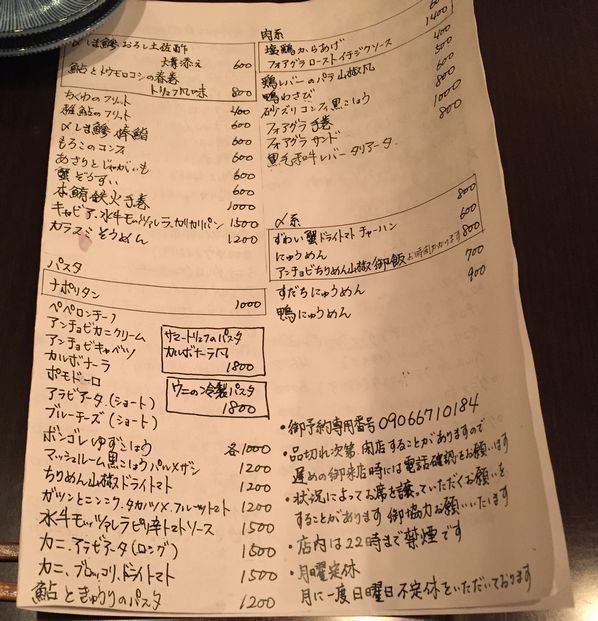 〆しま鯵おろし土佐酢
大葉添え 600
鮎とトウモロコシの春巻
トリュフ風味 800
ちくわのフリット 400
稚鮎のフリット 600
〆しま鯵棒鮨 600
もろこのコンフィ 600
あさりとじゃがいも 600
蟹ぞうすい 600
本鮪鉄火手巻 1000
キャビア、水牛モッツァレラ、カリカリパン 1500
カラスミそうめん 1200
パスタ
ナポリタン 1000
ペペロンチーノ
アンチョビカニクリーム
アンチョビキャベツ
カルボナーラ
ポモドーロ
アラビアータ(ショート)
ブルーチーズ(ショート)
ボンゴレゆずこしょう 各1000
マッシュルーム黒こうパルメザン 1200
ちりめん山椒ドライトマト 1200
ガツンとニンニク、タカノツメ、フルーツトマト 1200
水牛モッツァレラピリ辛トマトソース 1500
カニ、アラビアータ(ロング) 1500
カニ、ブロッコリ、ドライトマト 1500
鮎ときゅうりのパスタ 1200
サマートリュフのパスタ
カルボナーラ風
1800
ウニの冷製パスタ
1800
肉系
塩鶏からあげ
フォアグラローストイチヂクソース 1400
鶏レバーのパテ山椒風 400
鴨わさび 500
砂ズリコンフィ黒こしょう 600
フォアグラ手巻 800
フォアグラサンド 1000
黒毛和牛レバータリアータ 800
〆系
ずわい蟹ドライトマトチャーハン 800
にゅうめん 600
アンチョビちりめん山椒御飯 お時間かかります 800
すだちにゅうめん 700
鴨にゅうめん 900
・御予約専用番号09066710184
・品切れ次第、閉店することがありますので
遅めの御来店時には電話確認をお願います
・状況によってお席を譲っていただくお願いを
することがあります 御協力お願いいたします
・店内は22時まで禁煙です
・月曜定休
月に一度日曜日不定休をいただいております